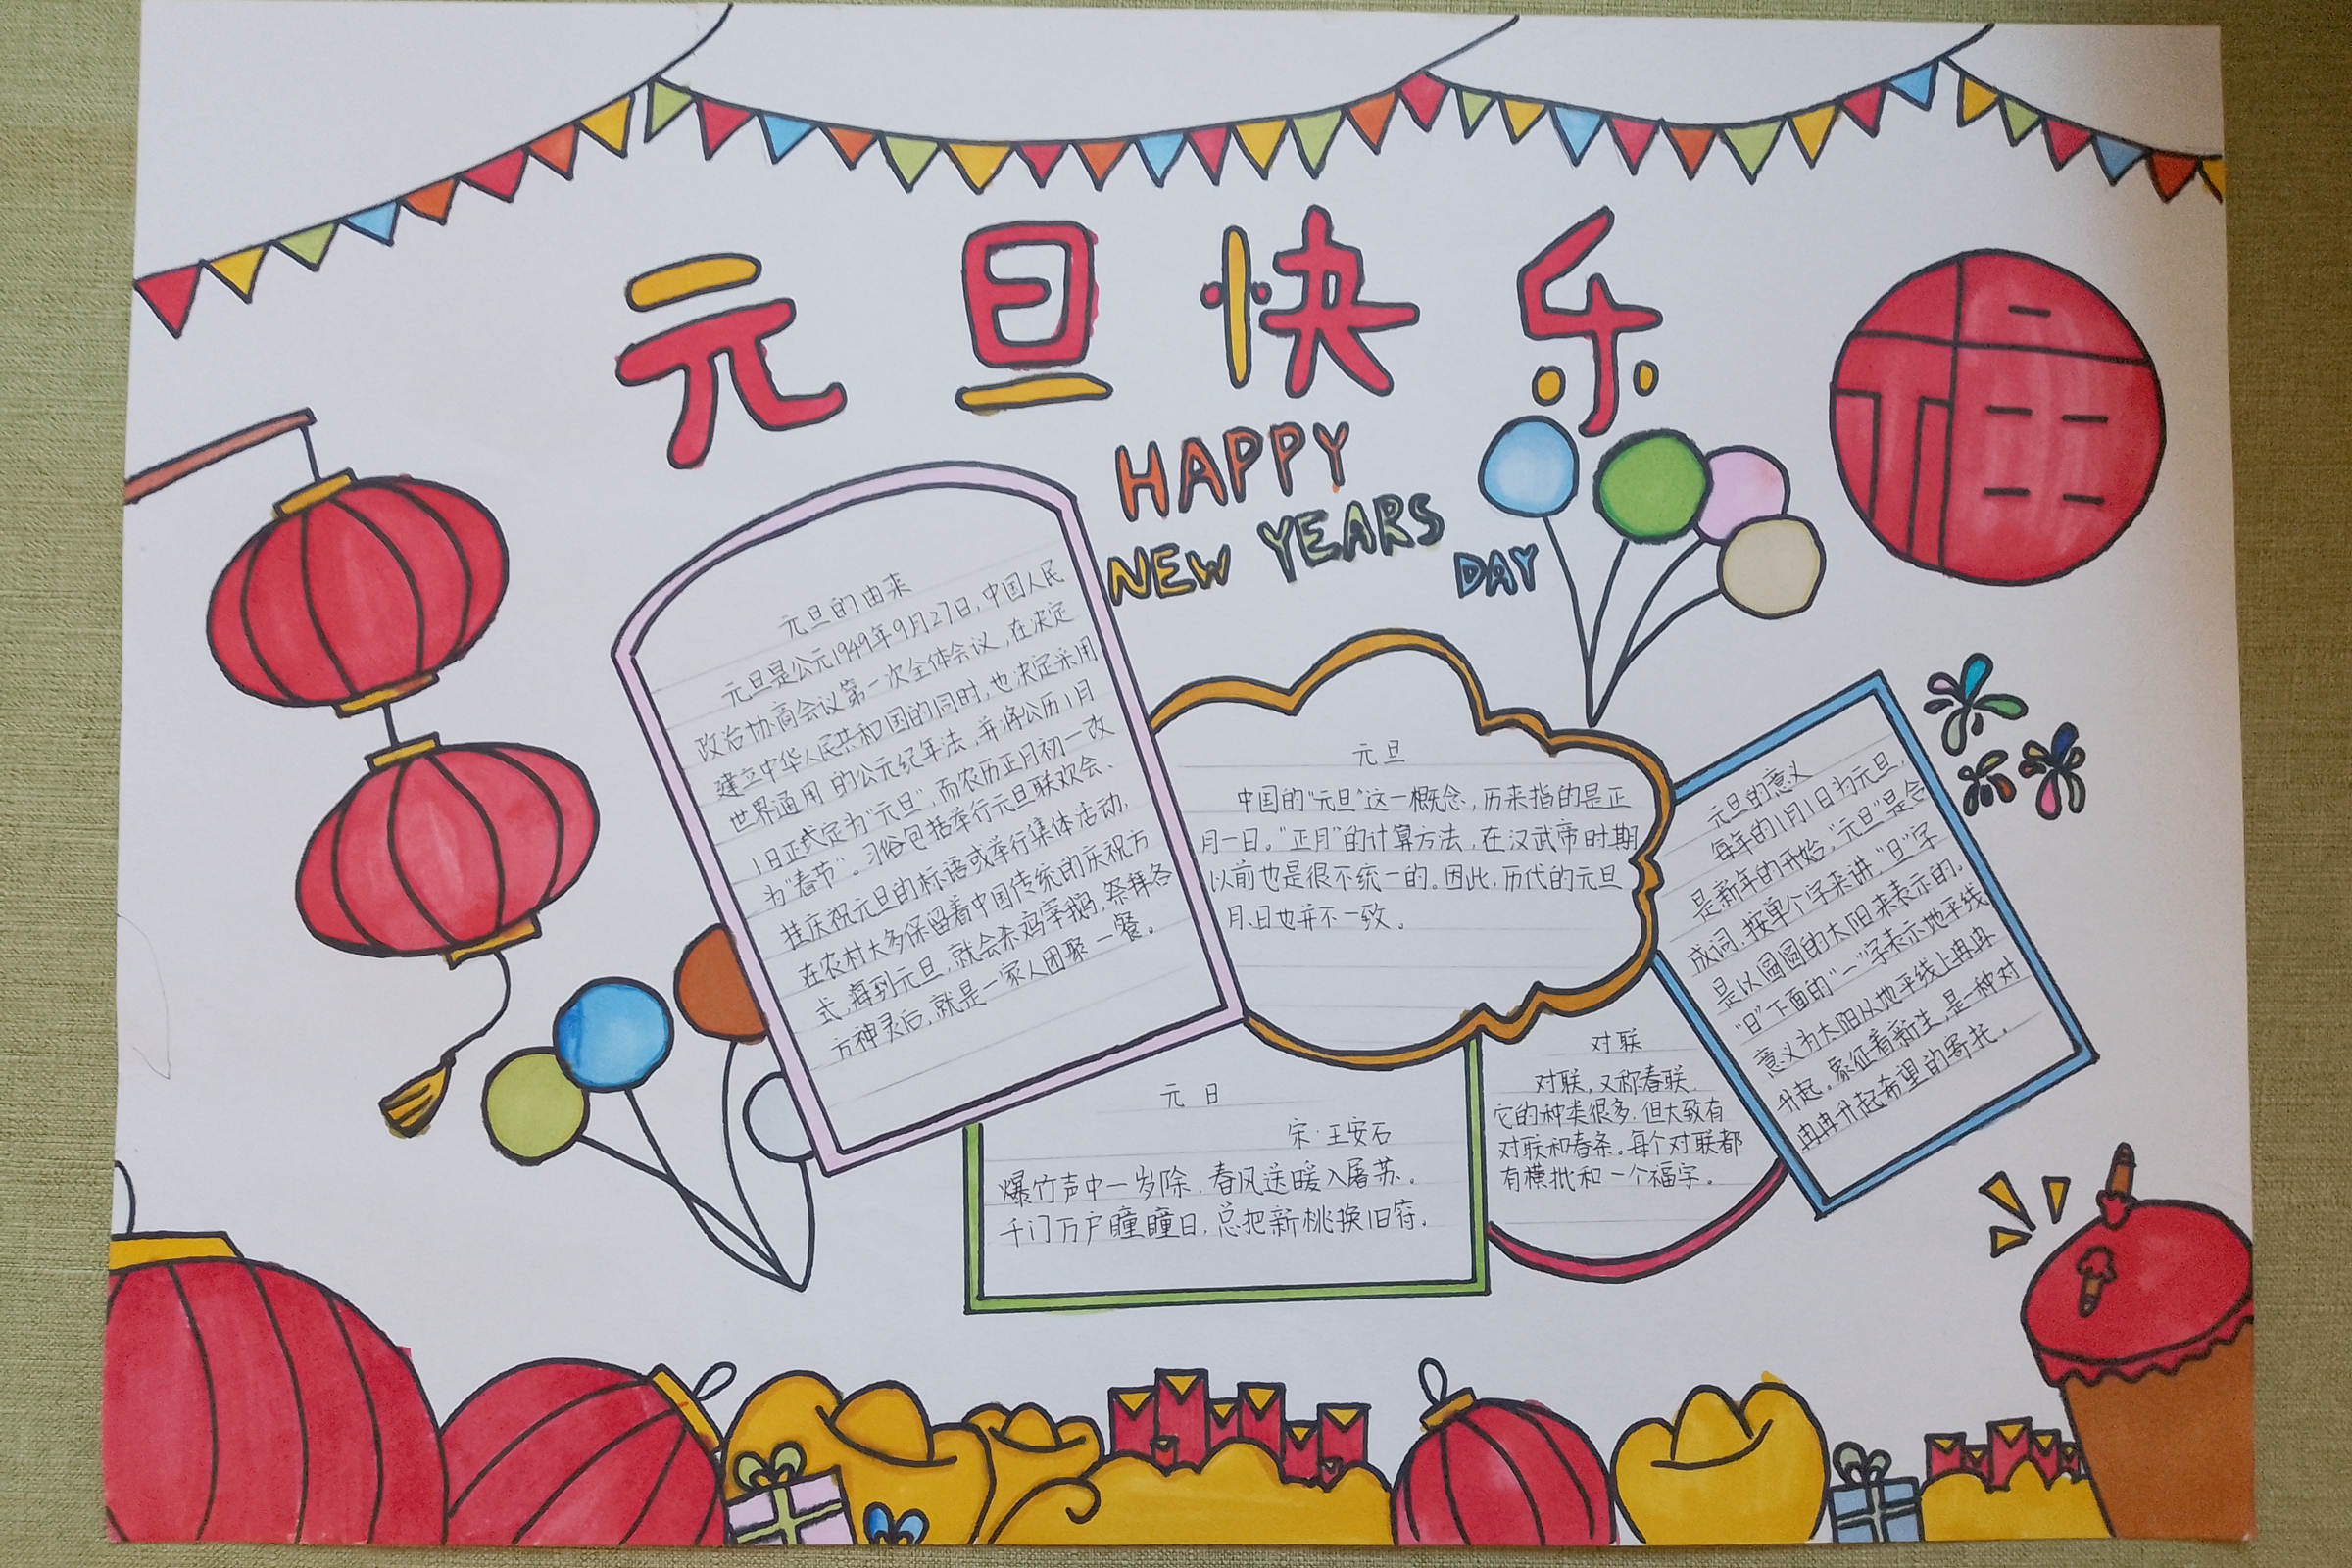 元旦快乐
福
HAPPY
NEW YEARS
DAY
元旦的由来
元旦是公元1949年9月27日,中国人民
政治协商会议第一次全体会议,在决定
建立中华人民共和国的同时,也决定采用
世界通用的公元纪年法,并将公历1月
1日正式定为“元旦”,而农历正月初一改
为“春节”。习俗包括举行元旦联欢会、
挂庆祝元旦的标语或举行集体活动,
在农村大多保留着中国传统的庆祝方
式,每到元旦,就会杀鸡宰鹅,祭拜各
方神灵后,就是一家人团聚一餐。
元旦
中国的“元旦”这一概念,历来指的是正
月一日。“正月”的计算方法,在汉武帝时期
以前也是很不统一的。因此,历代的元旦
月、日也并不一致。
元旦的意义
每年的1月1日为元旦,
是新年的开始,“元旦”是合
成词,按单个字来讲,“旦”字
是以圆圆的太阳来表示的。
“日”下面的“一”字表示地平线
意义为太阳从地平线上冉冉
升起。象征着新生,是一种对
冉冉升起希望的寄托。
元日
宋·王安石
爆竹声中一岁除,春风送暖入屠苏。
千门万户瞳瞳日,总把新桃换旧符。
对联
对联,又称春联,
它的种类很多,但大致有
对联和春条。每个对联都
有横批和一个福字。